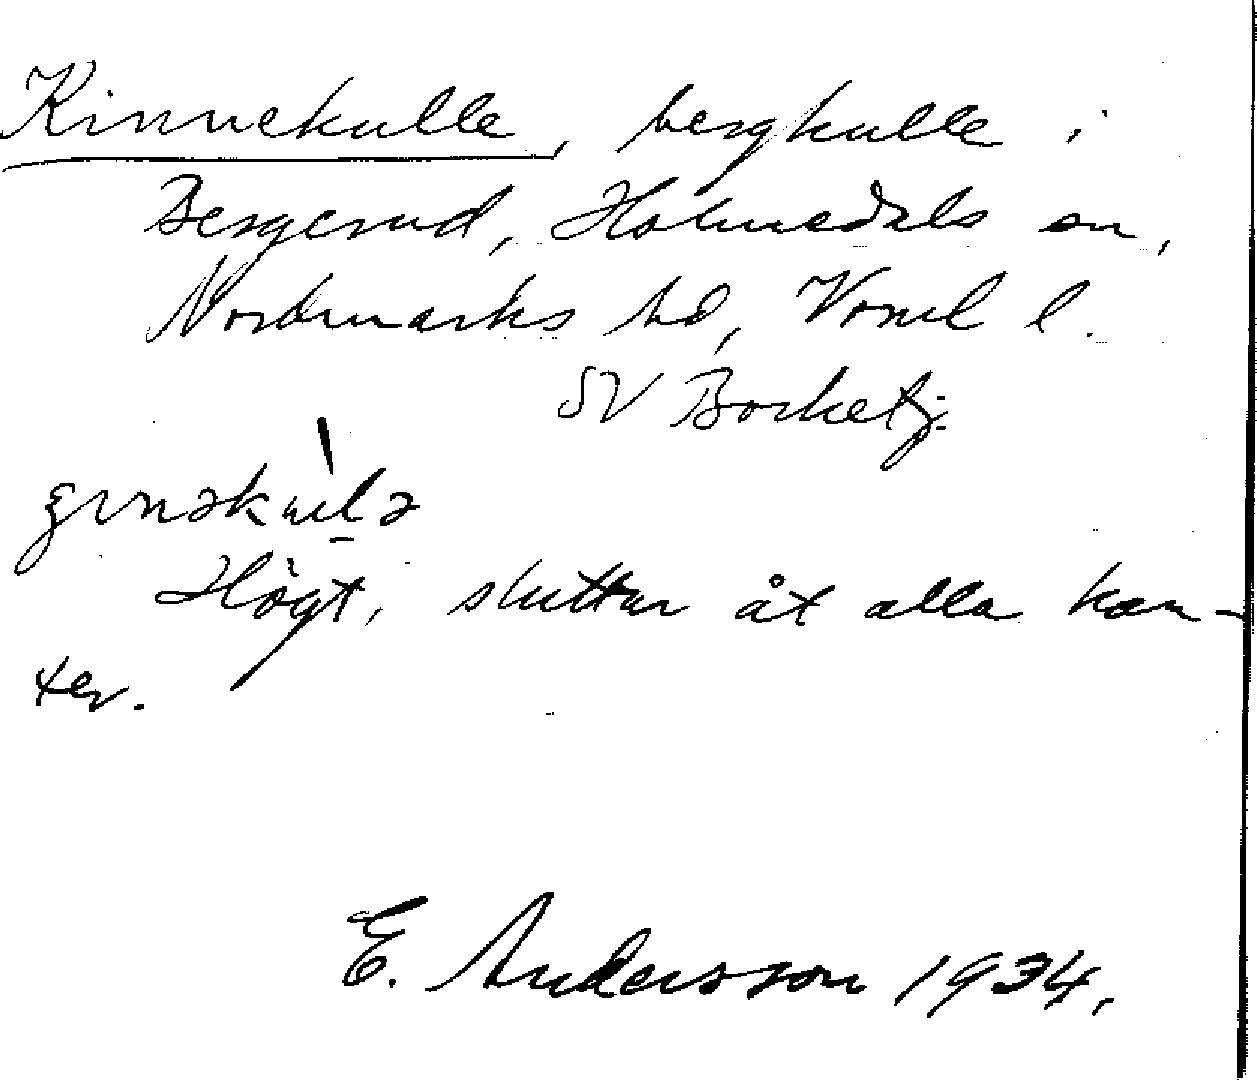 Kinnekulle, bergkulle i
Bergerud, Holmedals sn,
Nordmarks hd, Vrml l.
SV Borketj.
Högt, sluttar åt alla kan-
ter.
E. Andersson 1934.